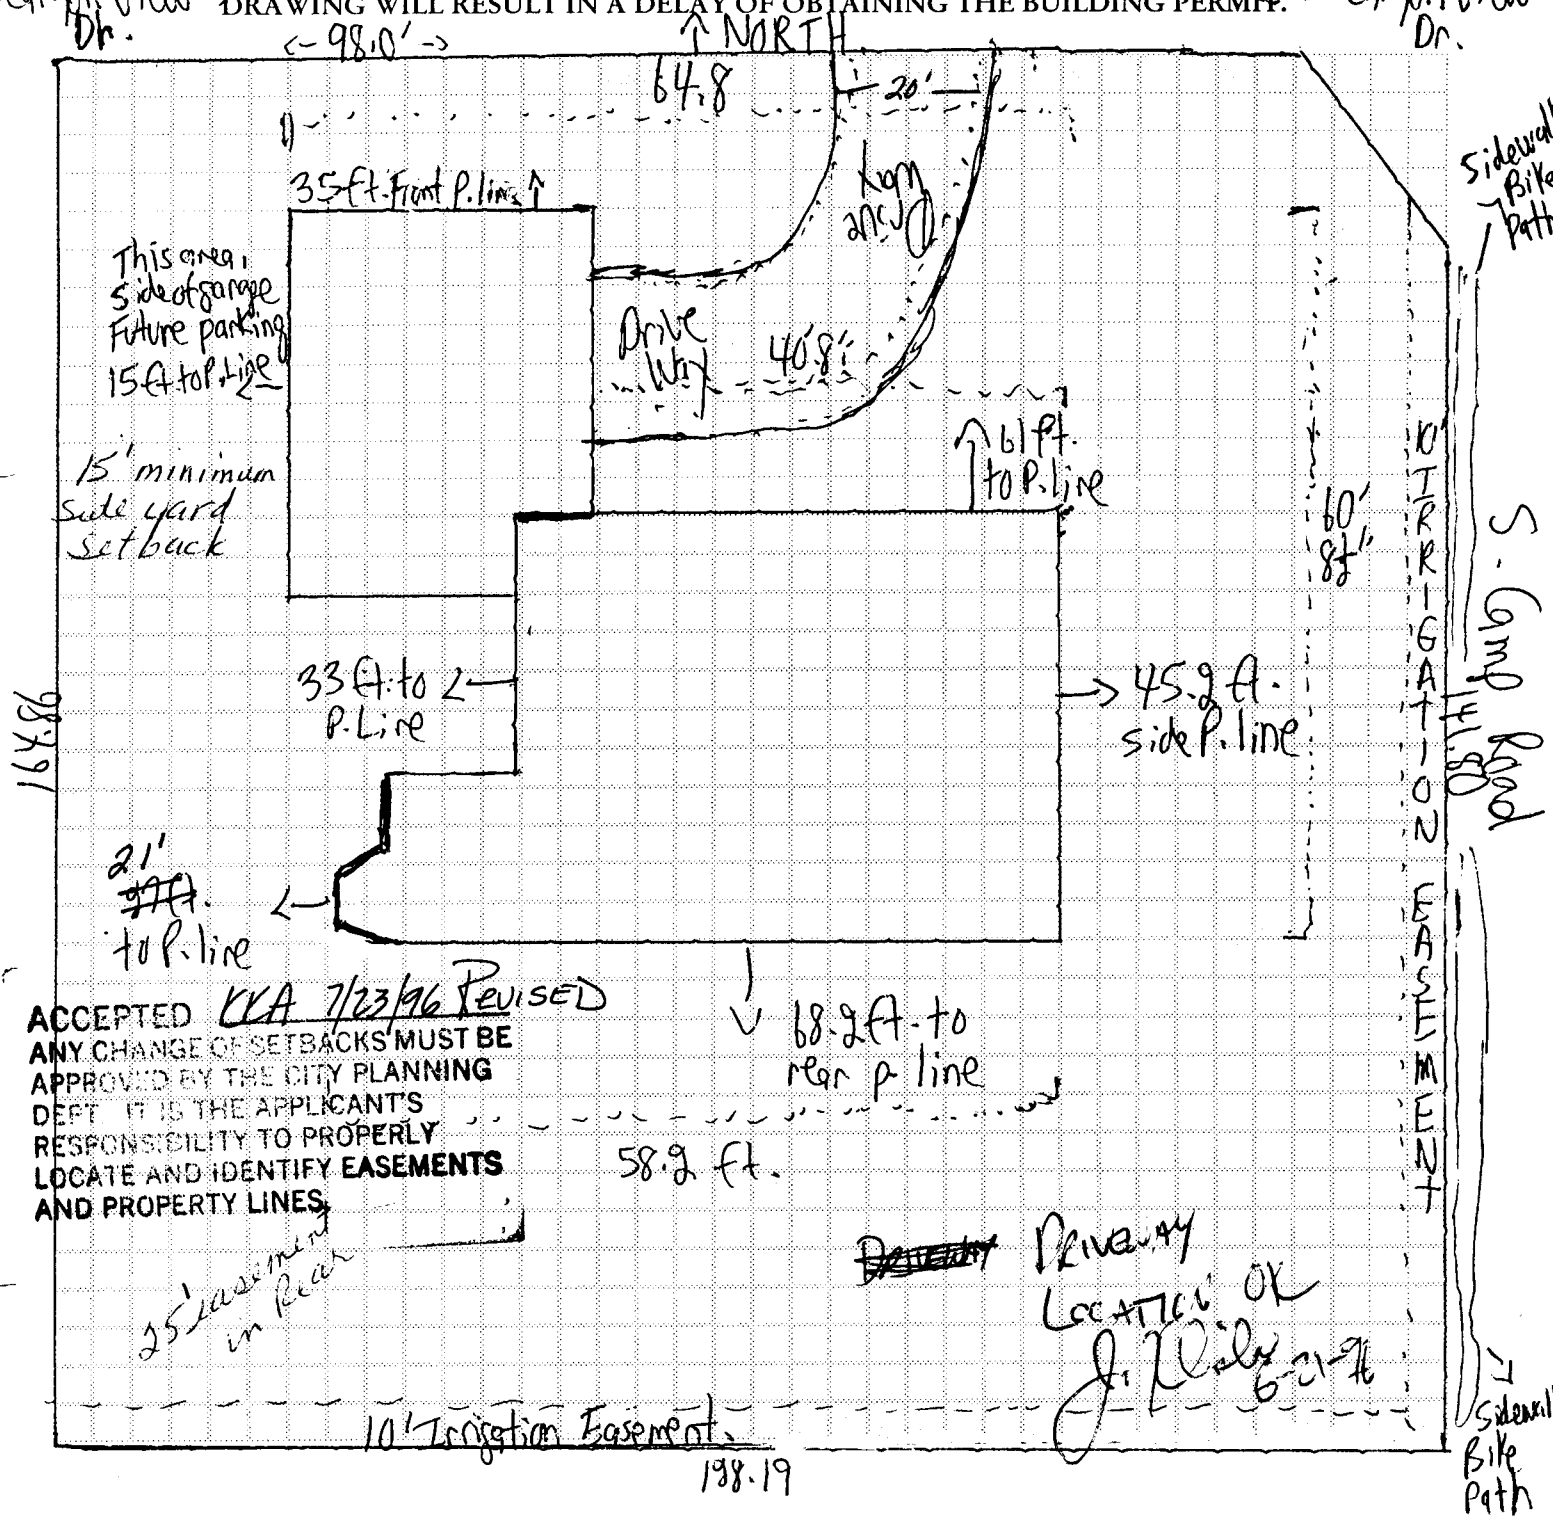 View DRAWING WILL RESULT IN A DELAY OF OBTAINING THE BUILDING PERMIT.
Dr.
Dr.
<- 98.0' ->
↑ NORTH
64.8
20'
35 ft. Front P. line ↑
Drive
way
Sidewalk
Bike
Path
This area,
side of garage
Future parking
15 ft to P. Line
Drive
Way
40'8"
15' minimum
side yard
setback
↑ 61 ft.
to P. line
60'
8½"
10' IRRIGATION EASEMENT
S. Camp Road
141.80
164.86
33 ft. to
P. Line
45.2 ft.
side P. line
21'
to P. line
ACCEPTED KKA 7/23/96 REVISED
ANY CHANGE OF SETBACKS MUST BE
APPROVED BY THE CITY PLANNING
DEPT. IT IS THE APPLICANT'S
RESPONSIBILITY TO PROPERLY
LOCATE AND IDENTIFY EASEMENTS
AND PROPERTY LINES.
68.2 ft. to
rear p line
58.2 ft.
25' easement
in Rear
DRIVEWAY
DRIVEWAY
LOCATION OK
6-21-96
10' Irrigation Easement.
198.19
Sidewalk
Bike
Path